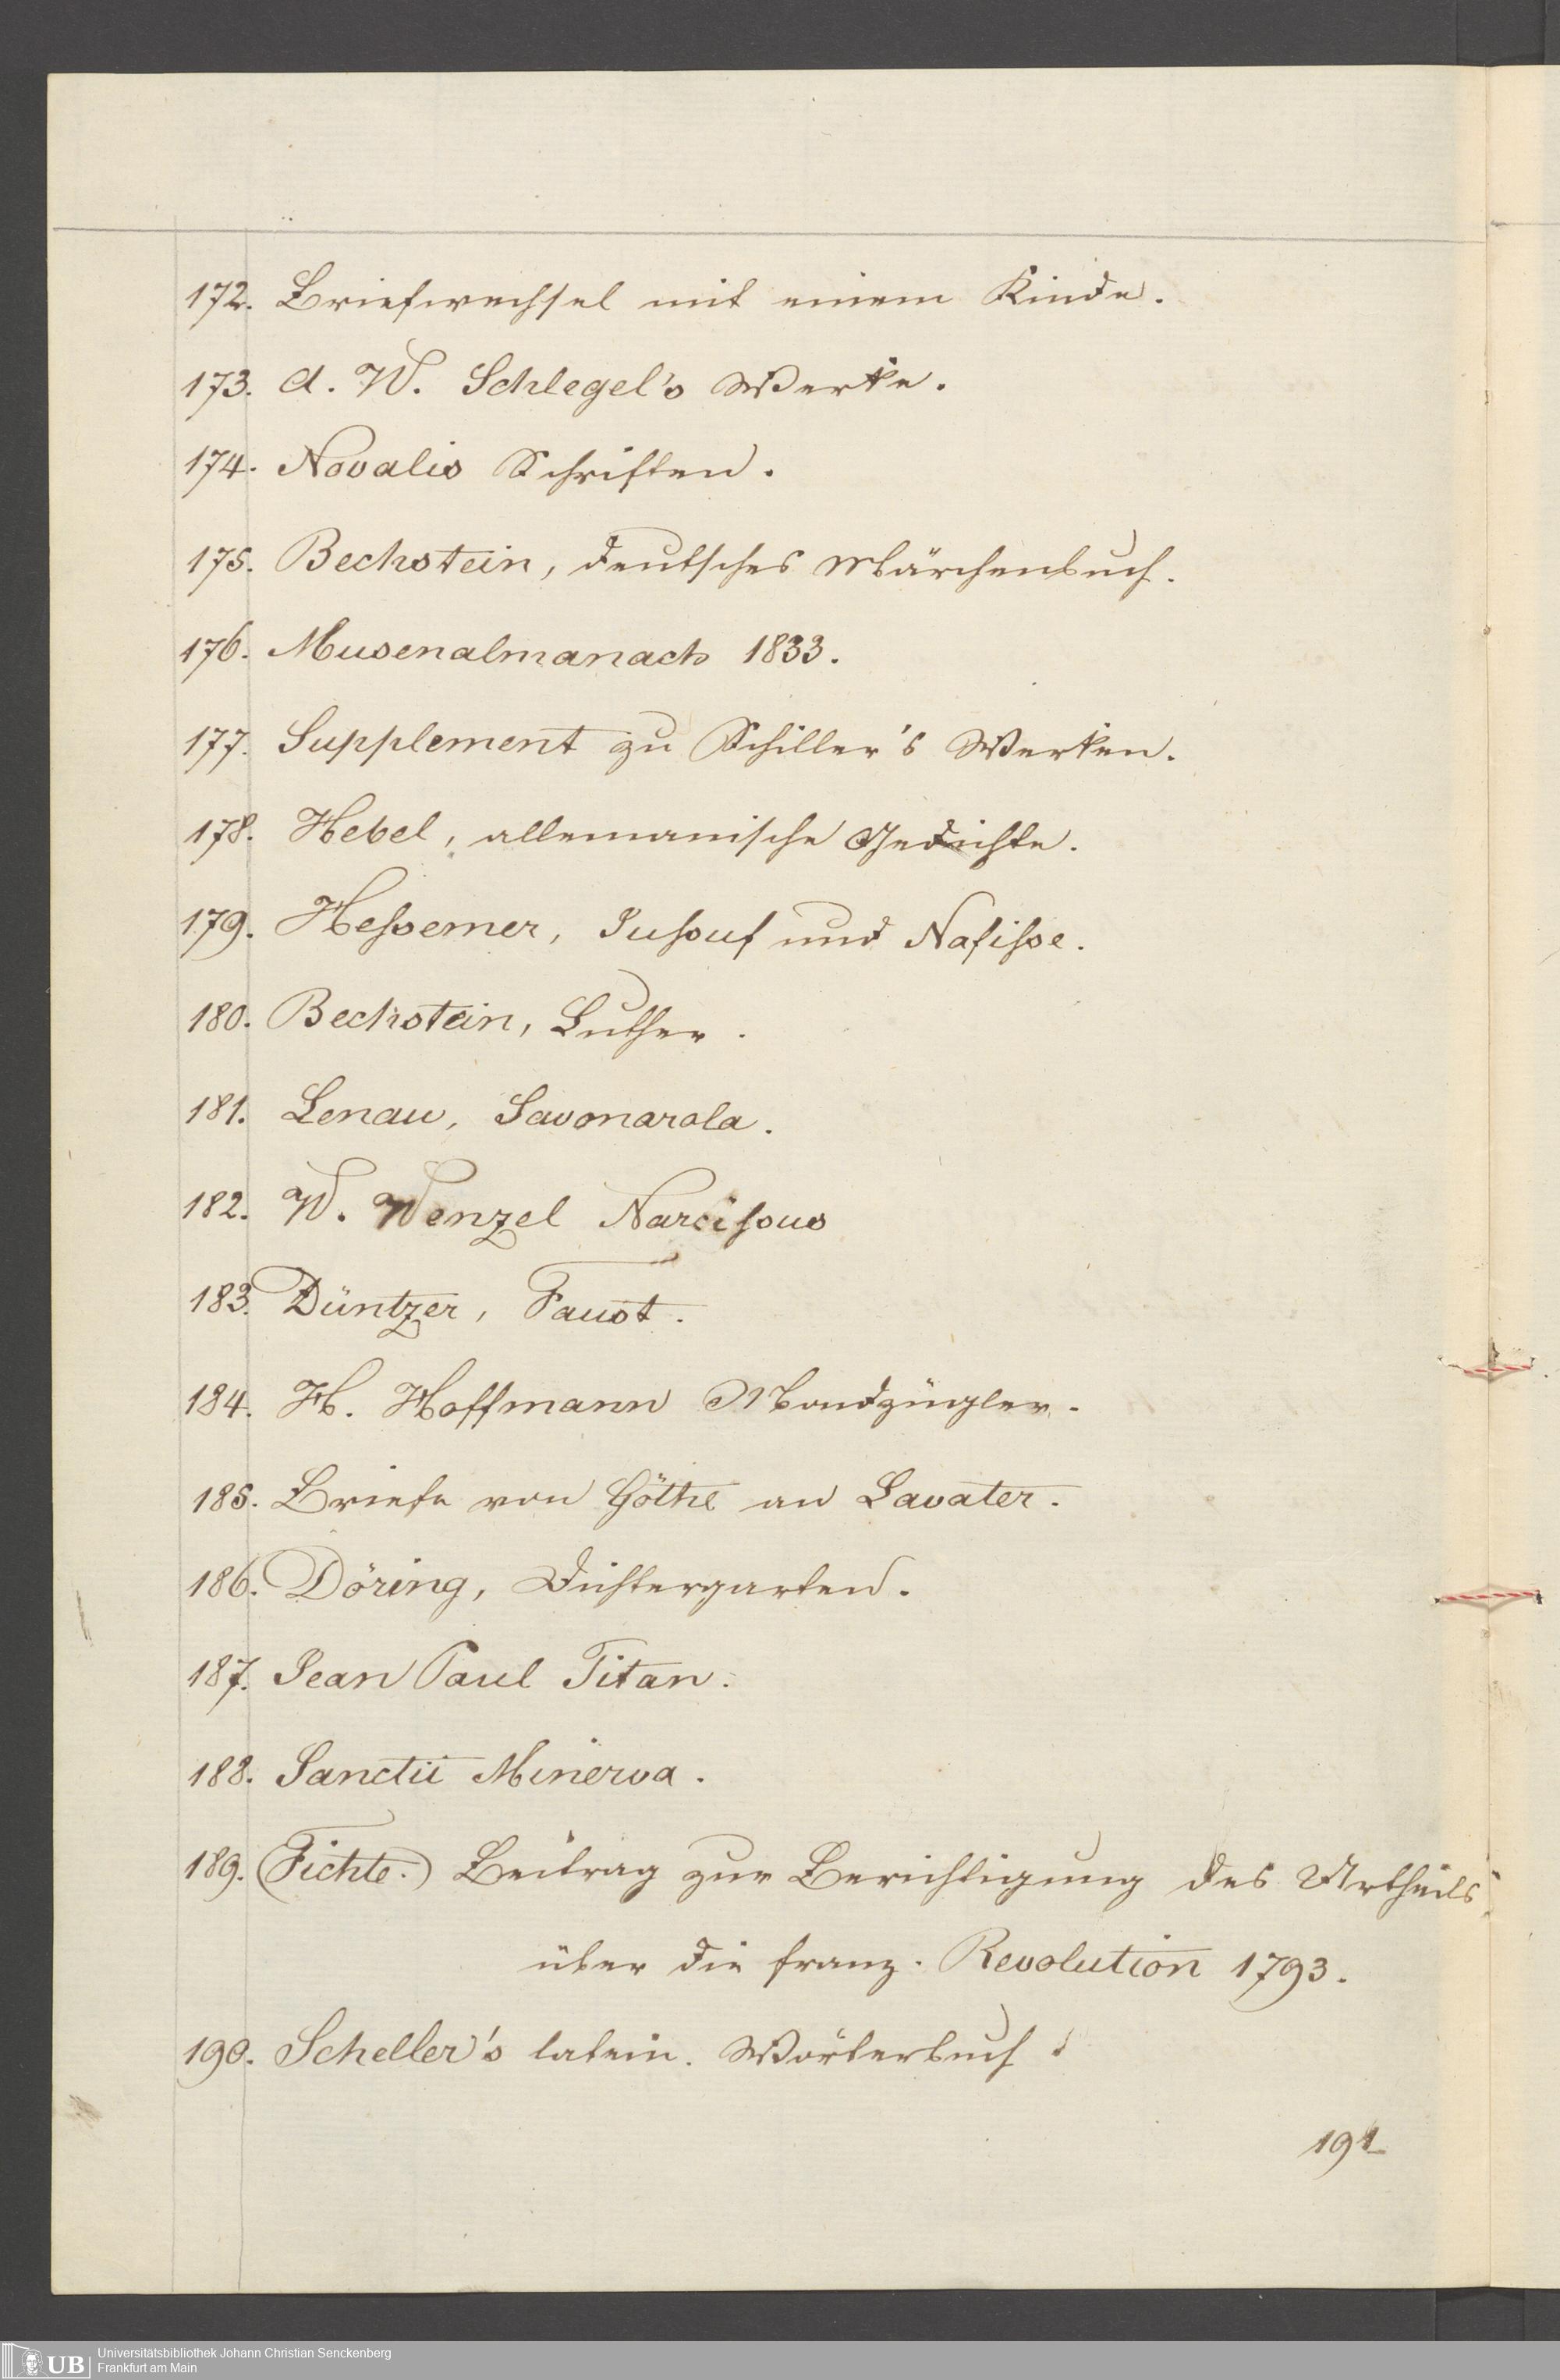 172. Briefwechsel mit einem Kinde.
173. A. W. Schlegel's Werke.
174. Novalis Schriften.
175. Bechstein, deutsches Märchenbuch.
176. Musenalmanach 1833.
177. Supplement zu Schiller's Werken.
178. Hebel, allemanische Gedichte.
179. Heſsemer, Juſsuf und Nafiſse.
180. Bechstein, Luther.
181. Lenau, Savonarola.
182. W. Wenzel Narciſsus
183. Düntzer, Faust.
184. H. Hoffmann Mondzügler.
185. Briefe von Göthe an Lavater.
186. Döring, Dichtergarten.
187. Jean Paul Titan.
188. Sanctii Minerva.
189. (Fichte.) Beitrag zur Berichtigung des Urtheils
über die franz. Revolution 1793.
190. Scheller's latein. Wörterbuch
191
Universitätsbibliothek Johann Christian Senckenberg
Frankfurt am Main
UB